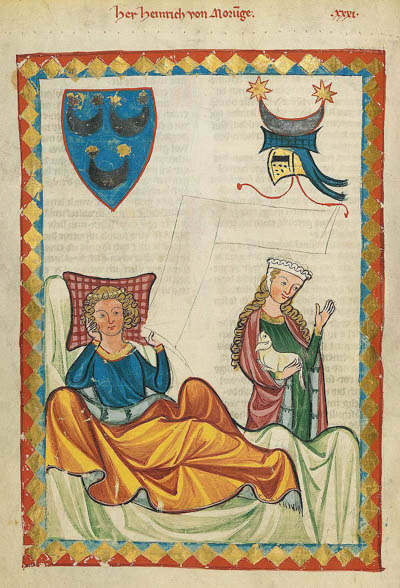 her heinrich von Morūge. .xxxi.